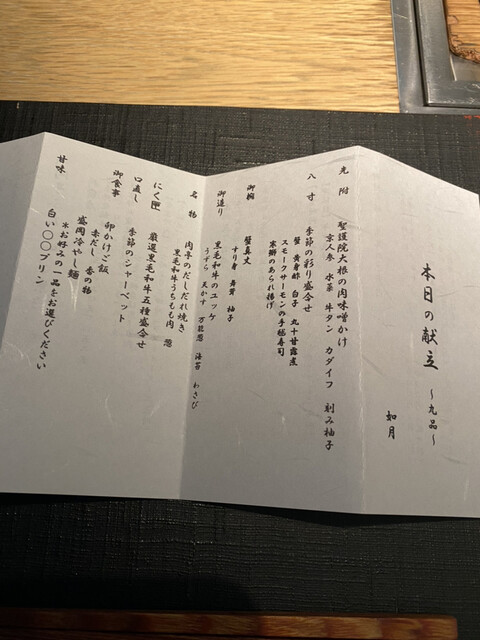 本日の献立 ～九品～
如月
先附
聖護院大根の肉味噌かけ
京人参 水菜 牛タン カダイフ 刻み柚子
八寸
季節の彩り盛合せ
蟹 黄身酢 白子 丸十甘露煮
スモークサーモンの手毬寿司
寒鰤のあられ揚げ
御椀
蟹真丈
すり身 舞茸 柚子
御造り
黒毛和牛のユッケ
うずら 天かす 万能葱 海苔 わさび
名物
肉亭のだしだれ焼き
黒毛和牛うちもも肉 葱
にく匣
厳選黒毛和牛五種盛合せ
口直し
季節のシャーベット
御食事
卵かけご飯
赤だし 香の物
盛岡冷やし麺
※お好みの一品をお選びください
甘味
白い○○プリン